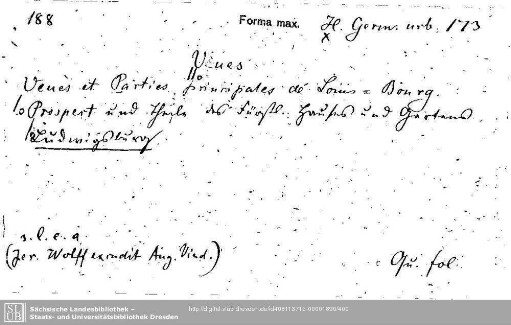 188 Forma max. H. Germ. urb. 173
Vues
Veues et Parties principales de Louis = Bourg.
Prospect und Theile des Fürstl. Hauses und Gartens
Ludwigsburg
s. l. e. a.
(Jer. Wolff excudit Aug. Vind.) Qu. fol.
Sächsische Landesbibliothek –
Staats- und Universitätsbibliothek Dresden